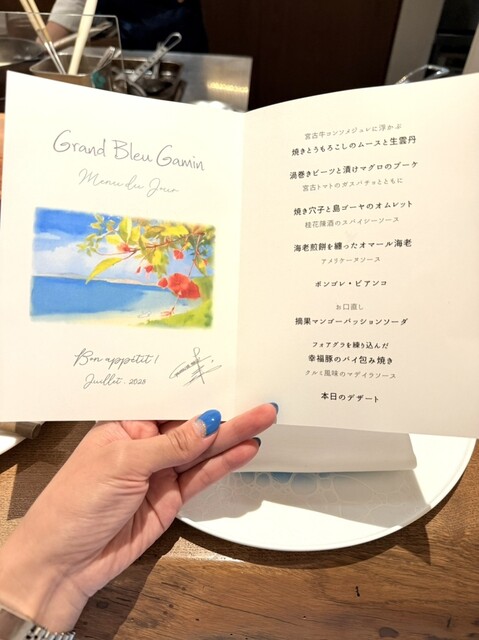 Grand Bleu Gamin
Menu du Jour
Bon appétit!
Juillet - 2023
宮古牛コンソメジュレに浮かぶ
焼きとうもろこしのムースと生雲丹
渦巻きビーツと漬けマグロのブーケ
宮古トマトのガスパチョとともに
焼き穴子と島ゴーヤのオムレット
桂花陳酒のスパイシーソース
海老煎餅を纏ったオマール海老
アメリケーヌソース
ボンゴレ・ビアンコ
お口直し
摘果マンゴーパッションソーダ
フォアグラを練り込んだ
幸福豚のパイ包み焼き
クルミ風味のマデイラソース
本日のデザート